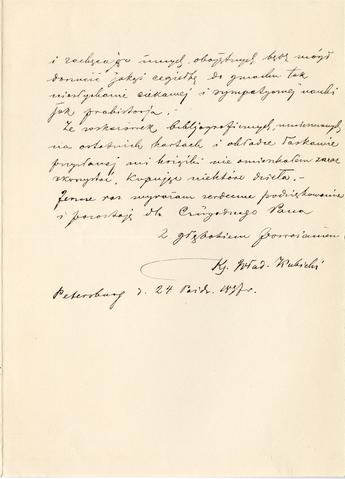 i zachęcając innych obojętnych będę mógł
dorzucić jakąś cegiełkę do gmachu tak
niesłychanie ciekawej i sympatycznej nauki
jak prahistorja.
Ze wskazówek bibljograficznych, umieszczonych
na ostatnich kartach i okładce łaskawie
przysłanej mi książki nie omieszkałem zaraz
skorzystać, kupując niektóre dzieła.
Jeszcze raz wyrażam serdeczne podziękowanie
i pozostaję dla Czcigodnego Pana
z głębokiem poważaniem
Ks. Wład. Kubicki
Petersburg d. 24 Paźdz. 1897 r.